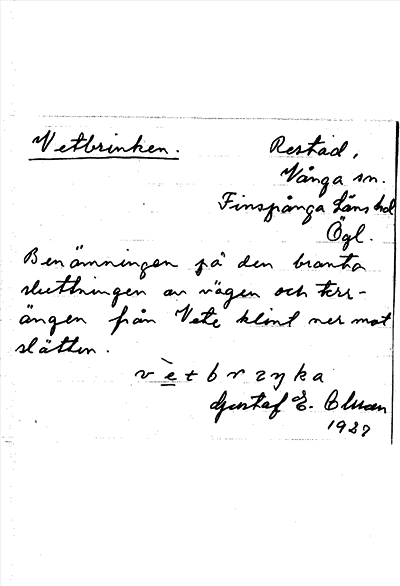 Vetbrinken.
Restad,
Vånga sn.
Finspånga läns hd
Ögl.
Benämningen på den branta
sluttningen av vägen och terr-
ängen från Vete klint ner mot
slätten.
Gustaf E.
1927